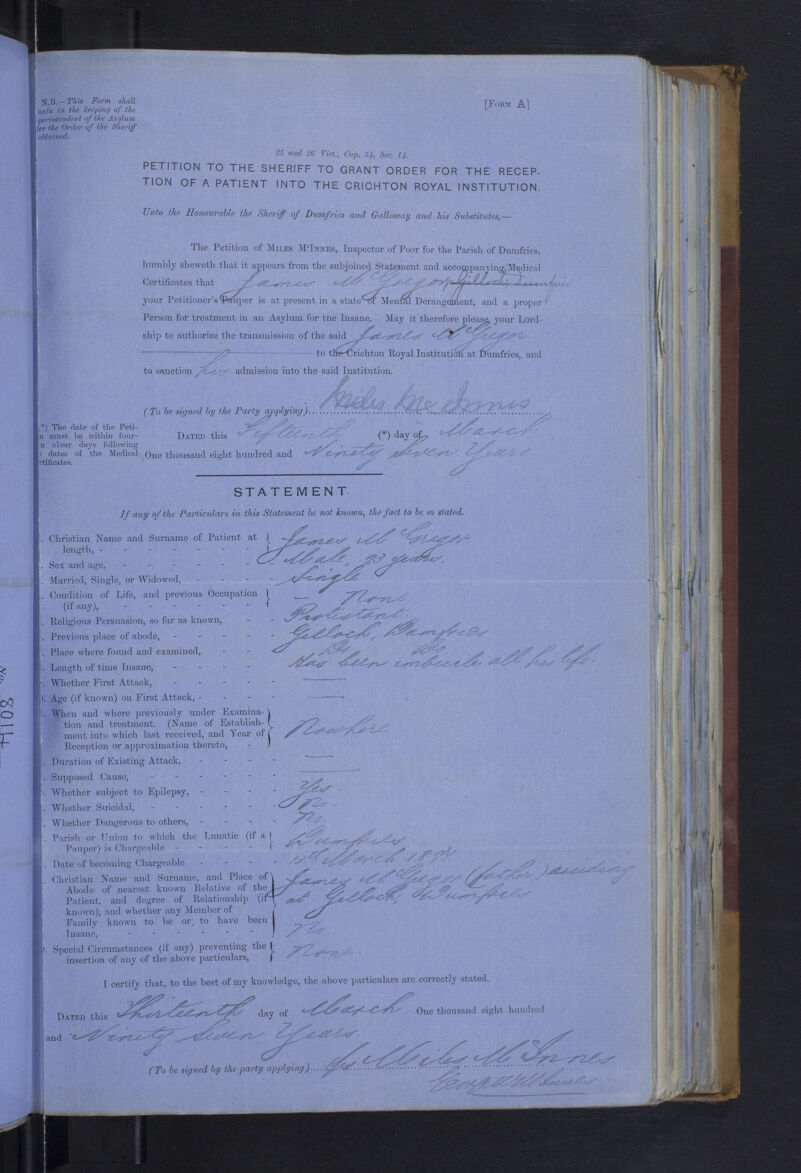 N.B.—This Form shall
in the keeping of the
Superintendent of the Asylum
the Order of the Sheriff
obtained.
[FORM A]
25 and 26 Vict., Cap. 54, Sec. 14.
PETITION TO THE SHERIFF TO GRANT ORDER FOR THE RECEP-
TION OF A PATIENT INTO THE CRICHTON ROYAL INSTITUTION.
Unto the Honourable the Sheriff of Dumfries and Galloway and his Substitutes,—
The Petition of MILES M'INNES, Inspector of Poor for the Parish of Dumfries,
humbly sheweth that it appears from the subjoined Statement and accompanying Medical
Certificates that James McGregor, Gilloch, Dumfries
your Petitioner's Pauper is at present in a state of Mental Derangement, and a proper
Person for treatment in an Asylum for the Insane. May it therefore please your Lord-
ship to authorize the transmission of the said James McGregor
to the Crichton Royal Institution at Dumfries, and
to sanction his admission into the said Institution.
(To be signed by the Party applying) Miles McInnes
*) The date of the Peti-
must be within four-
clear days following
dates of the Medical
DATED this Fifteenth (*) day of March
One thousand eight hundred and Ninety Seven Years
STATEMENT.
If any of the Particulars in this Statement be not known, the fact to be so stated.
Christian Name and Surname of Patient at
length, - James McGregor
Sex and age, - Male, 23 years.
Married, Single, or Widowed, - Single
Condition of Life, and previous Occupation
(if any), - None
Religious Persuasion, so far as known, - Protestant
Previous place of abode, - Gilloch, Dumfries
Place where found and examined, - Do Do
Length of time Insane, - Has been imbecile all his life.
Whether First Attack, -
Age (if known) on First Attack, -
When and where previously under Examina-
tion and treatment. (Name of Establish-
ment into which last received, and Year of
Reception or approximation thereto, - Nowhere
Duration of Existing Attack, -
Supposed Cause, -
Whether subject to Epilepsy, - Yes
Whether Suicidal, - No
Whether Dangerous to others, - No
Parish or Union to which the Lunatic (if a
Pauper) is Chargeable - Dumfries
Date of becoming Chargeable - March
Christian Name and Surname, and Place of
Abode of nearest known Relative of the
Patient, and degree of Relationship (if
known), and whether any Member of
Family known to be or to have been
Insane, -
James McGregor (father) residing
at Gilloch, Dumfries
No
Special Circumstances (if any) preventing the
insertion of any of the above particulars, None.
I certify that, to the best of my knowledge, the above particulars are correctly stated.
DATED this Thirteenth day of March One thousand eight hundred
and Ninety Seven Years.
(To be signed by the party applying) Miles McInnes